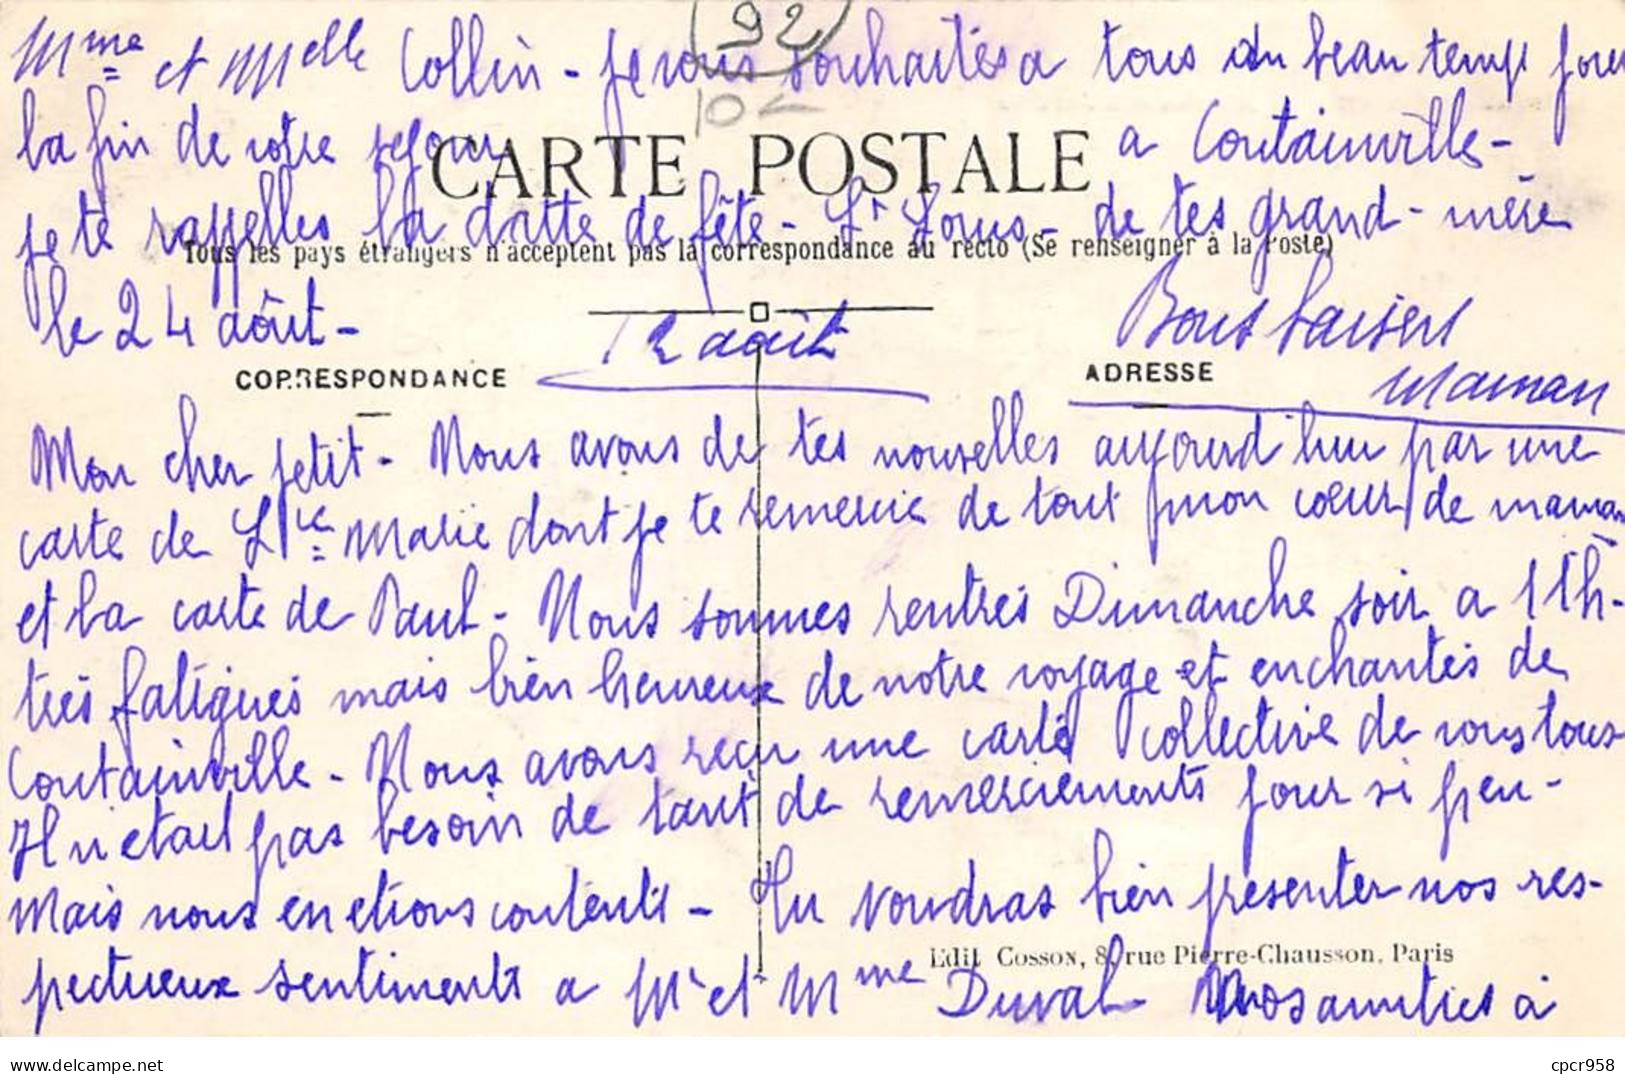 (92)
Mme et Melle Collin - je vous souhaites a tous du beau temps pour
10
la fin de votre sejour a Coutainville -
CARTE POSTALE
je te rappelles la datte de fête - St Louis - de tes grand-mère
Tous les pays étrangers n'acceptent pas la correspondance au recto (Se renseigner à la Poste)
le 24 aôut - 
12 août
Bons baisers
CORRESPONDANCE
ADRESSE
Maman
Mon cher petit - Nous avons de tes nouvelles aujourd hui par une
carte de Ste Marie dont je te remercie de tout mon cœur de maman
et la carte de Paul - Nous sommes rentrés Dimanche soir a 11h -
tres fatigués mais bien heureux de notre voyage et enchantés de
Coutainville - Nous avons reçu une carte collective de vous tous
Il n etait pas besoin de tant de remerciements pour si peu -
Mais nous en etions contents - Tu voudras bien presenter nos res-
Edit Cosson, 8, rue Pierre-Chausson, Paris
pectueux sentiments a Mr et Mme Duval nos amities à
cpcr958